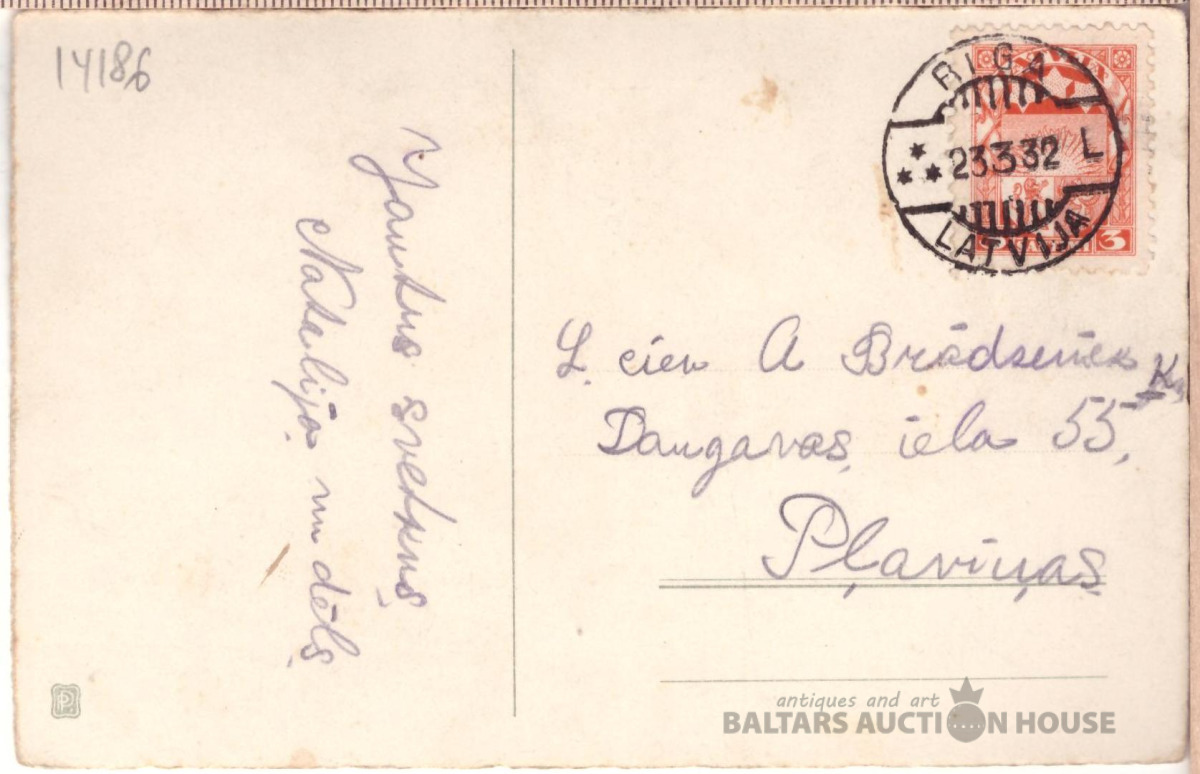 14186
Jautrus svetkus
Natalija un dēls
RIGA
23 3 32 L
LATVIJA
3 3
L. cien A Brādzeniek
Kz
Daugavas iela 55,
Pļaviņas
PP
antiques and art
BALTARS AUCTION HOUSE